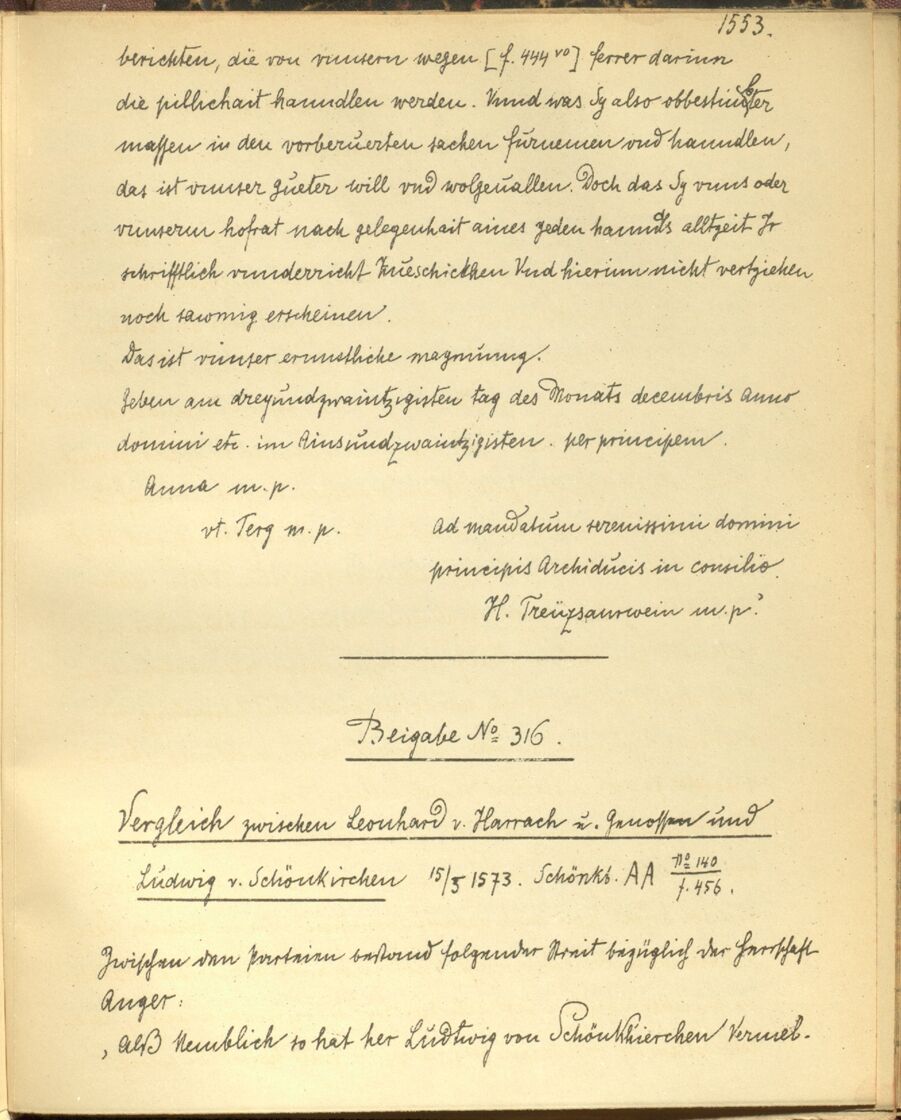 1553.
berichten, die von vnnsern wegen [f. 444 vo] ferrer darinn
die pillichait hanndlen werden. Vnnd was Sy also obbestimbter
massen in den vorberuerten sachen fürnemen vnd hanndlen,
das ist vnnser gueter will vnd wolgeuallen. Doch das Sy vnns oder
vnnserm hofrat nach gelegenhait aines yeden hanndls alltzeit Ir
schrifftlich vnnderricht zueschickhen Vnd hierinn nicht vertziehen
noch sawmig erscheinen.
Das ist vnnser ernnstliche maynung.
Geben am dreyundzwaintzigisten tag des Monats decembris anno
domini etc. im Ainsundzwaintzigisten. per principem.
Anna m. p.
vt. Terg m. p.
Ad mandatum serenissimi domini
principis Archiducis in consilio
H. Treüzsaurwein m. p.
Beigabe No 316.
Vergleich zwischen Leonhard v. Harrach u. Genossen und
Ludwig v. Schönkirchen 15/5 1573. Schönkb. AA No 140 / f. 456.
Zwischen den Parteien bestand folgender Streit bezüglich der Herrschaft
Anger:
„Alß Nemblich so hat her Ludtwig von Schönkhierchen Vermel-